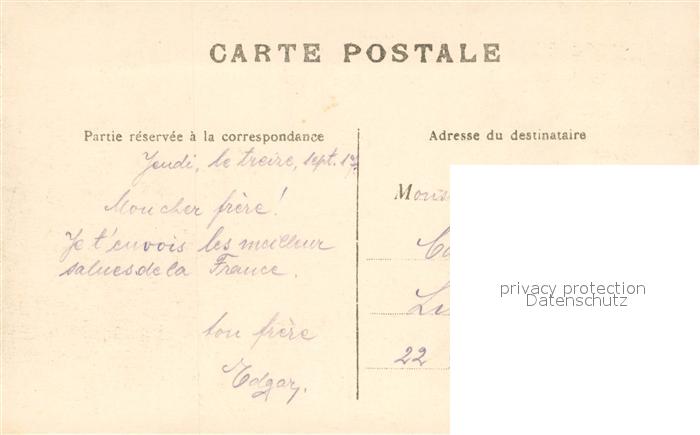 CARTE POSTALE
Partie réservée à la correspondance
Jeudi, le treize, sept. 17.
Mon cher frère!
Je t'envois les meilleur
salues de la France.
ton frère
Edgar.
Adresse du destinataire
22
privacy protection
Datenschutz